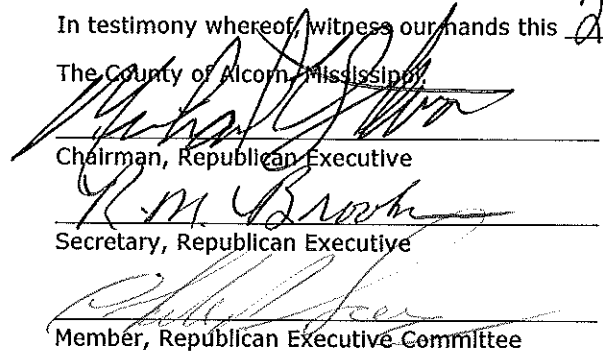 In testimony whereof, witness our hands this 2
The County of Alcorn, Mississippi.
Chairman, Republican Executive
R.M. Brooks
Secretary, Republican Executive
Member, Republican Executive Committee